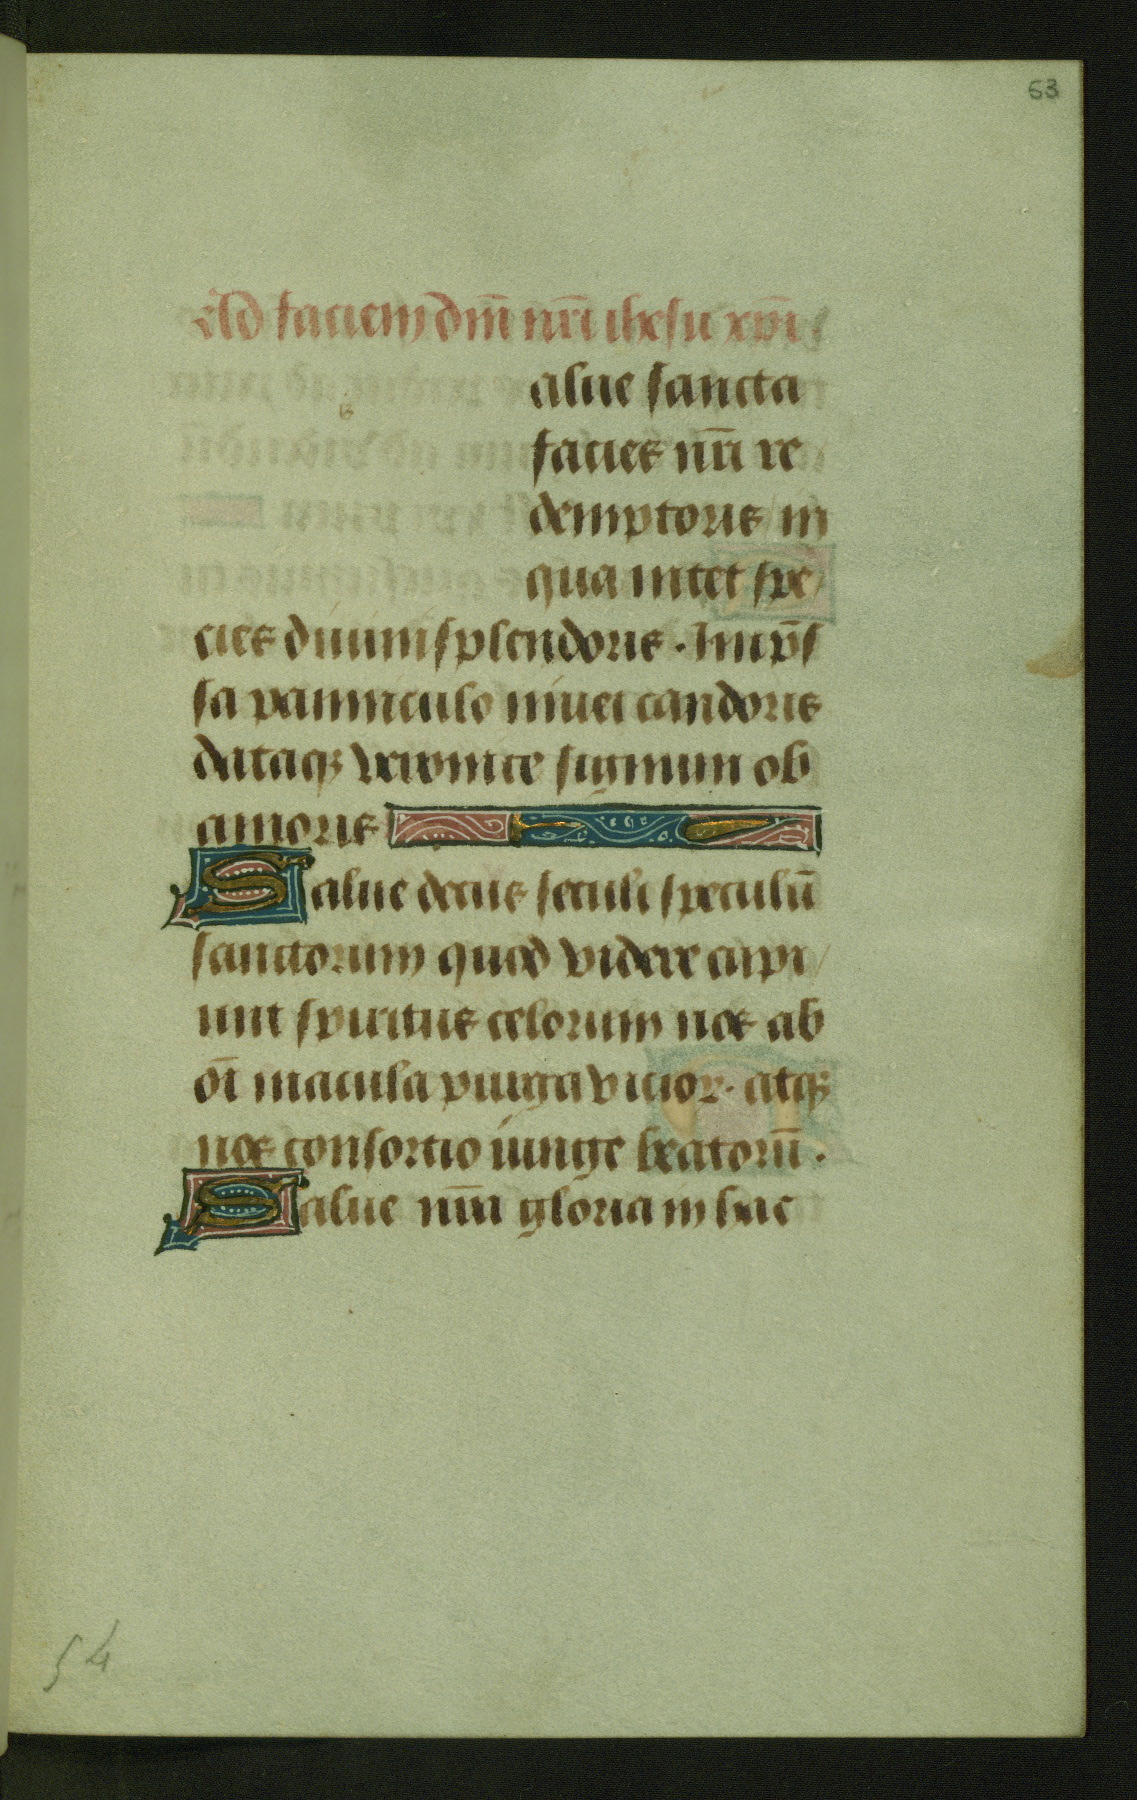 63
Ad faciem dm̄ nr̄i ihesu xp̄i
alue sancta
facies nr̄i re
demptoris in
qua nitet spe
cies diuini splendoris · Imp̄s
sa panniculo niuei candoris
dataqꝫ veronice signum ob
amoris
Salue decus seculi speculū
sanctorum quod videre cupi
unt spiritus celorum nos ab
oī macula purga vicioꝝ· atqꝫ
nos consortio iunge beatorū ·
Salue nr̄a gloria in hac
54